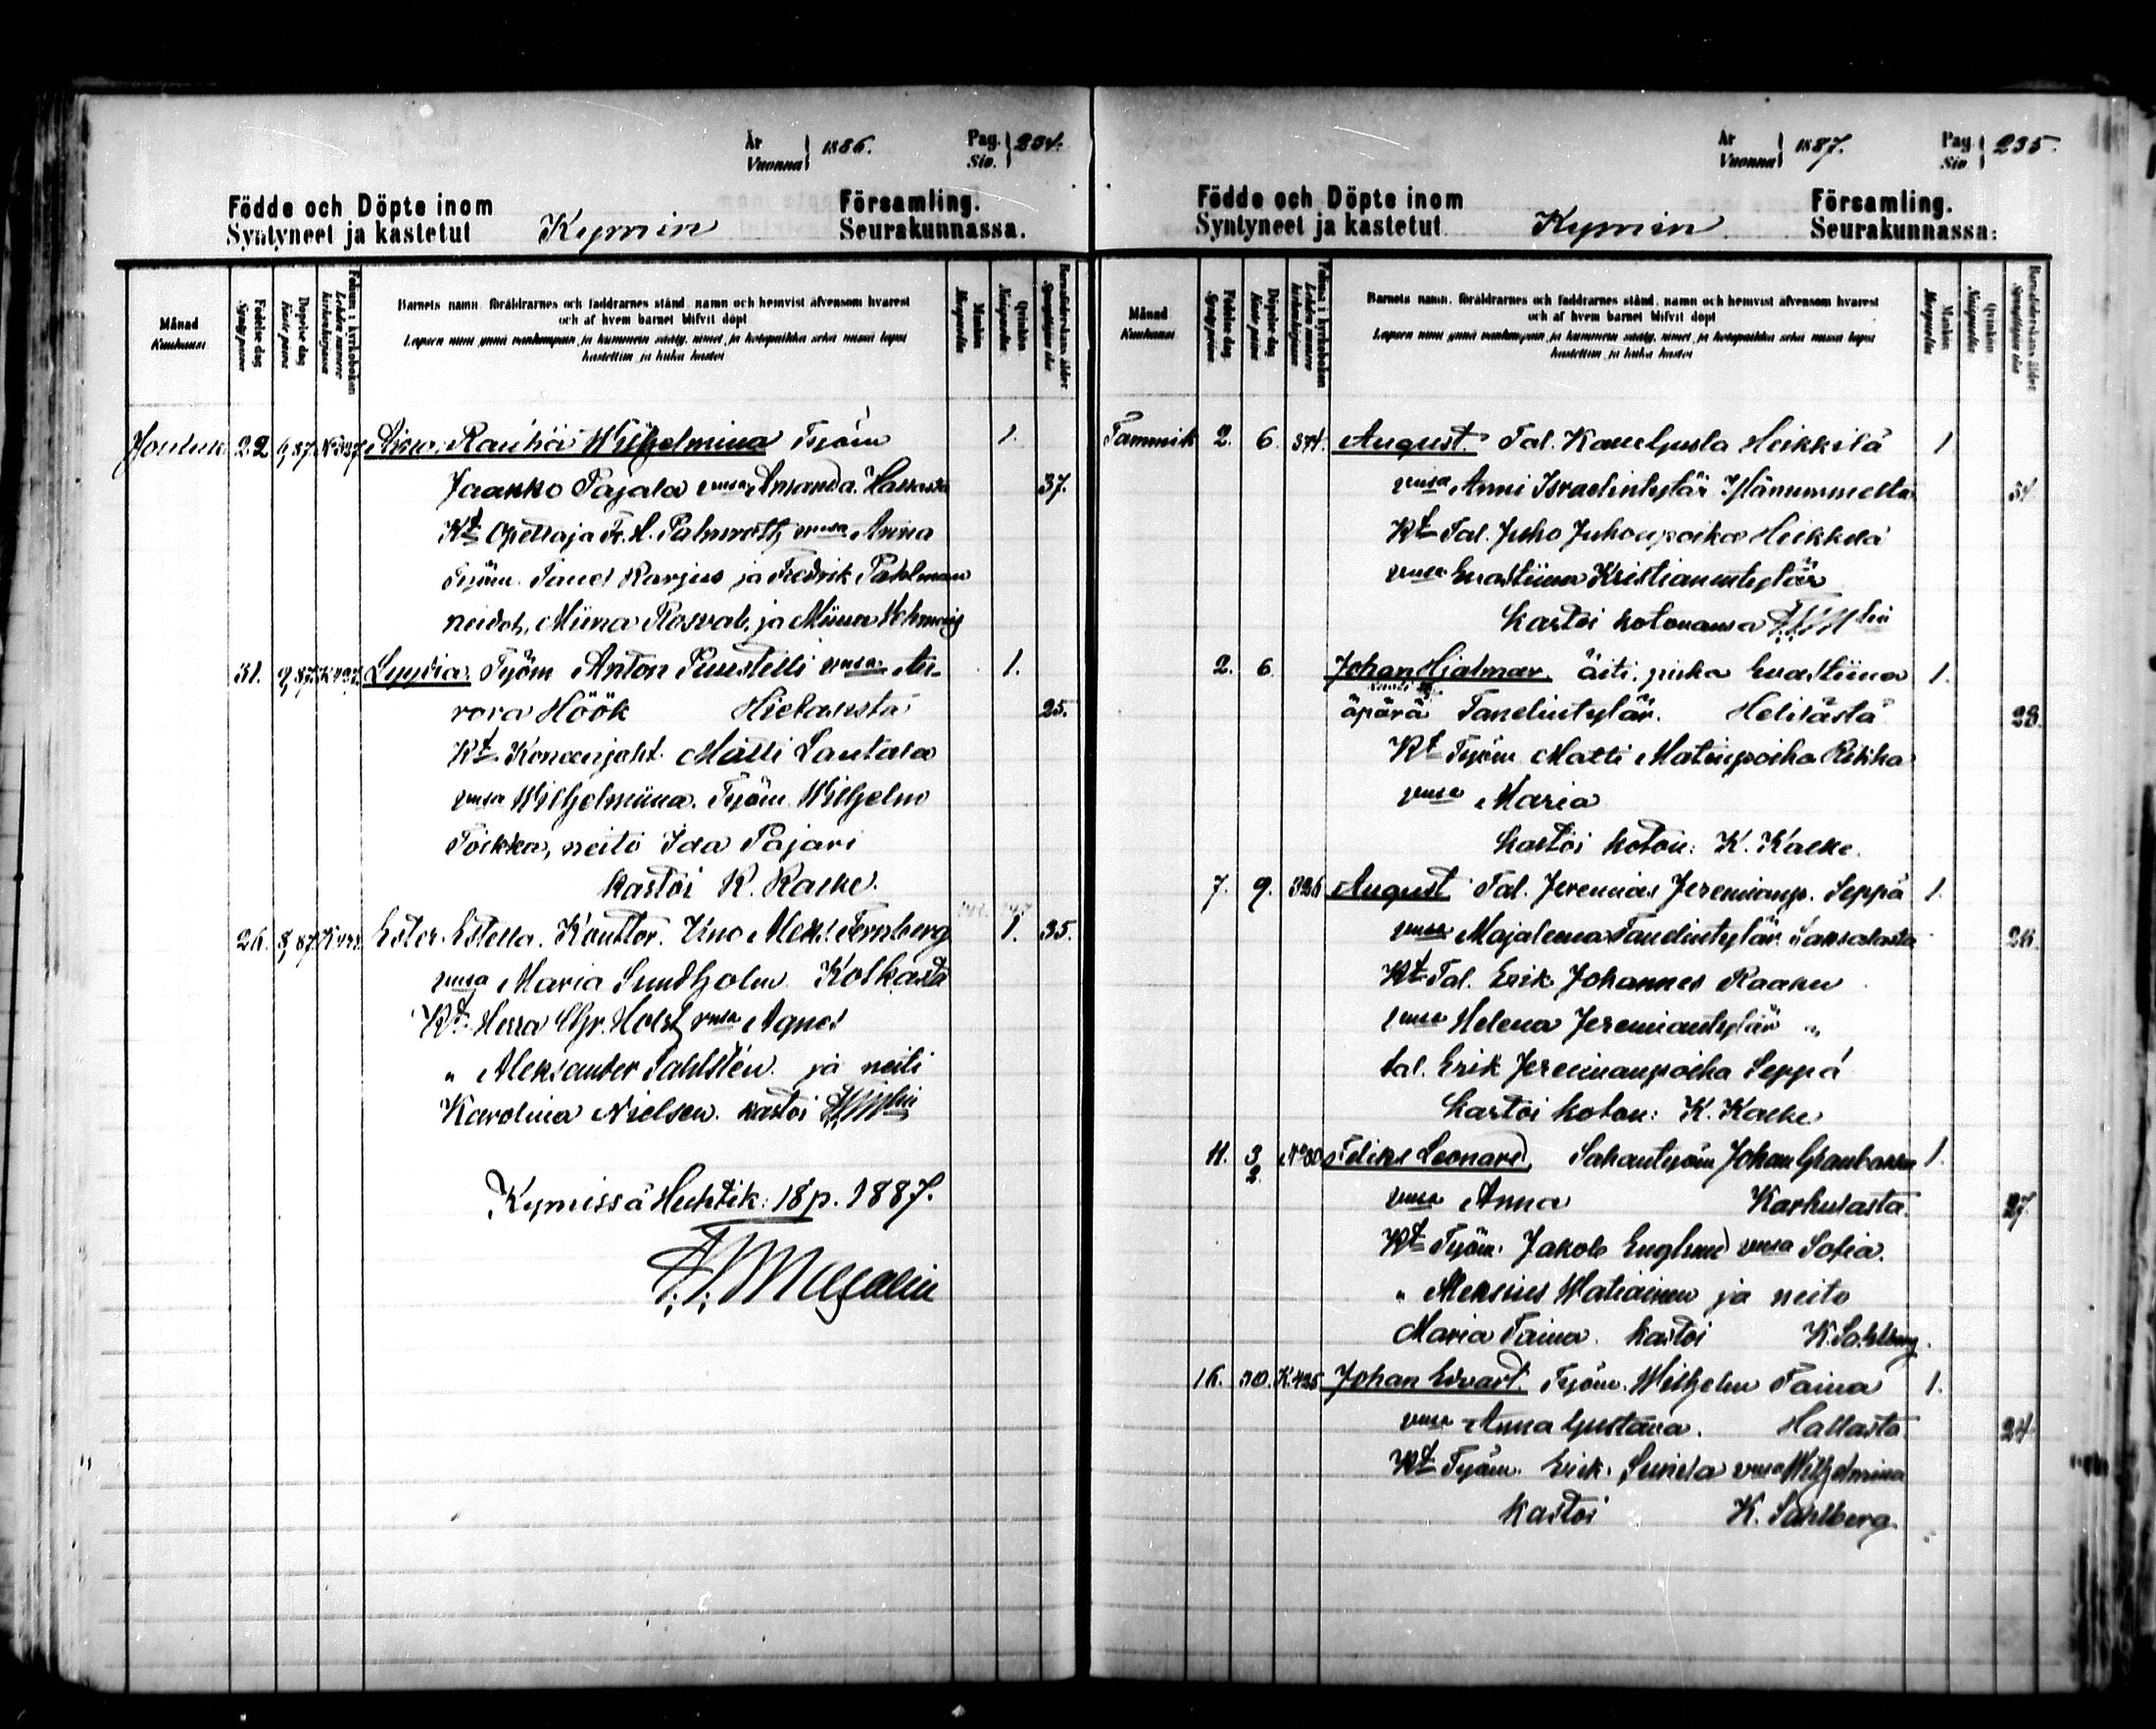 År
Vuonna } 1886. Pag.
Siv. } 234.
Födde och Döpte inom Församling.
Syntyneet ja kastetut Kymin Seurakunnassa.
Månad
Kuukausi
Födelse dag
Syntypäivä
Döpelse dag
Kaste päivä
Folium i kyrkoboken
Lehden numero kirkonkirjassa
Barnets namn, föräldrarnes och faddrarnes stånd, namn och hemvist äfvensom hvarest
och af hvem barnet blifvit döpt
Lapsen nimi ynnä vanhempain ja kummein sääty, nimet ja kotopaikka sekä missä lapsi
kastettiin ja kuka kastoi
Mankön
Miespuolta
Qvinkön
Naispuolta
Barnaföderskans ålder
Synnyttäjän ikä
Jouluk 22 9/87 Rauha Wilhelmina Työm 1.
Jaakko Pajala vmsa Amanda 37.
Kt Opettaja vmsa Anna
Työm. Taned Karjus ja Fredrik Pahlman
neidot, Miina Rosval, ja Miina
31. Lyydia. Työm Anton Puustelli vmsa Au- 1.
rora Höök Hietansta 25.
Kt Koneenjoht. Matti Lautala
vmsa Wilhelmiina. Työm. Wilhelm
Toikka, neito Ida Pajari
kastoi K. Kaelke.
26. 8/87 Ester Estella. Kanttor. Uno Aleks. Fernberg 1. 35.
vmsa Maria Sundholm Kotkasta
Kt Herra Chr. Holst vmsa Agnes
" Aleksander Sahlstén ja neiti
Karolina Nielsen. kastoi
Kymissä Huhtik: 18 p. 1887.
År
Vuonna } 1887. Pag.
Siv. } 235.
Födde och Döpte inom Församling.
Syntyneet ja kastetut Kymin Seurakunnassa:
Månad
Kuukausi
Födelse dag
Syntypäivä
Döpelse dag
Kaste päivä
Folium i kyrkoboken
Lehden numero kirkonkirjassa
Barnets namn, föräldrarnes och faddrarnes stånd, namn och hemvist äfvensom hvarest
och af hvem barnet blifvit döpt
Lapsen nimi ynnä vanhempain ja kummein sääty, nimet ja kotopaikka sekä missä lapsi
kastettiin ja kuka kastoi
Mankön
Miespuolta
Qvinkön
Naispuolta
Barnaföderskans ålder
Synnyttäjän ikä
Tammik 2. 6. 374. August. Tal. Heikkilä 1
vmsa Anni Israelintytär
Kt Tal. Juho Juhonpoika Heikkilä
vmsa Evastiina Kristianintytär
kastoi kotonansa
2. 6 Johan Hjalmar. äiti, piika Evastiina 1.
äpärä Tanelintytär. Helilästä 28.
Kt Työm Matti Matinpoika
vmsa Maria
kastoi koton: K. Kaelke.
7. 9. 326 August Tal. Jeremias Jeremianp. Seppä 1.
vmsa Majaleena Tanelintytär Saksalasta 26
Kt Tal. Erik Johannes Kaaku
vmsa Helena Jeremiantytär "
tal. Erik Jeremianpoika Seppä
kastoi koton: K. Kaelke
11. 3/2 Feliks Leonard, Sahantyöm Johan 1.
vmsa Anna Karhulasta. 27.
Kt Työm. Jakob Englund vmsa Sofia.
" Aleksius Watiainen ja neito
Maria Taina. kastoi K. Sahlberg.
16. 30. K.425 Johan Edvart. Työm. Wilhelm Taina 1.
vmsa Anna Gustava. Hallasta 24
Kt Työm. Erik Sunila vmsa Wilhelmina
kastoi K. Sahlberg